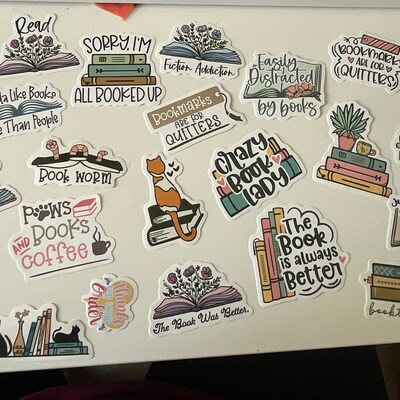 Read
SORRY, I'M
ALL BOOKED UP
Fiction Addiction
Easily
Distracted
by books
BOOKMARKS
ARE FOR
QUITTERS
Like Books
Than People
BOOKMARKS
ARE FOR
QUITTERS
Book worm
CRAZY
BOOK
LADY
PAWS
BOOKS
AND
COFFEE
The
BOOK
is always
Better
The Book Was Better.